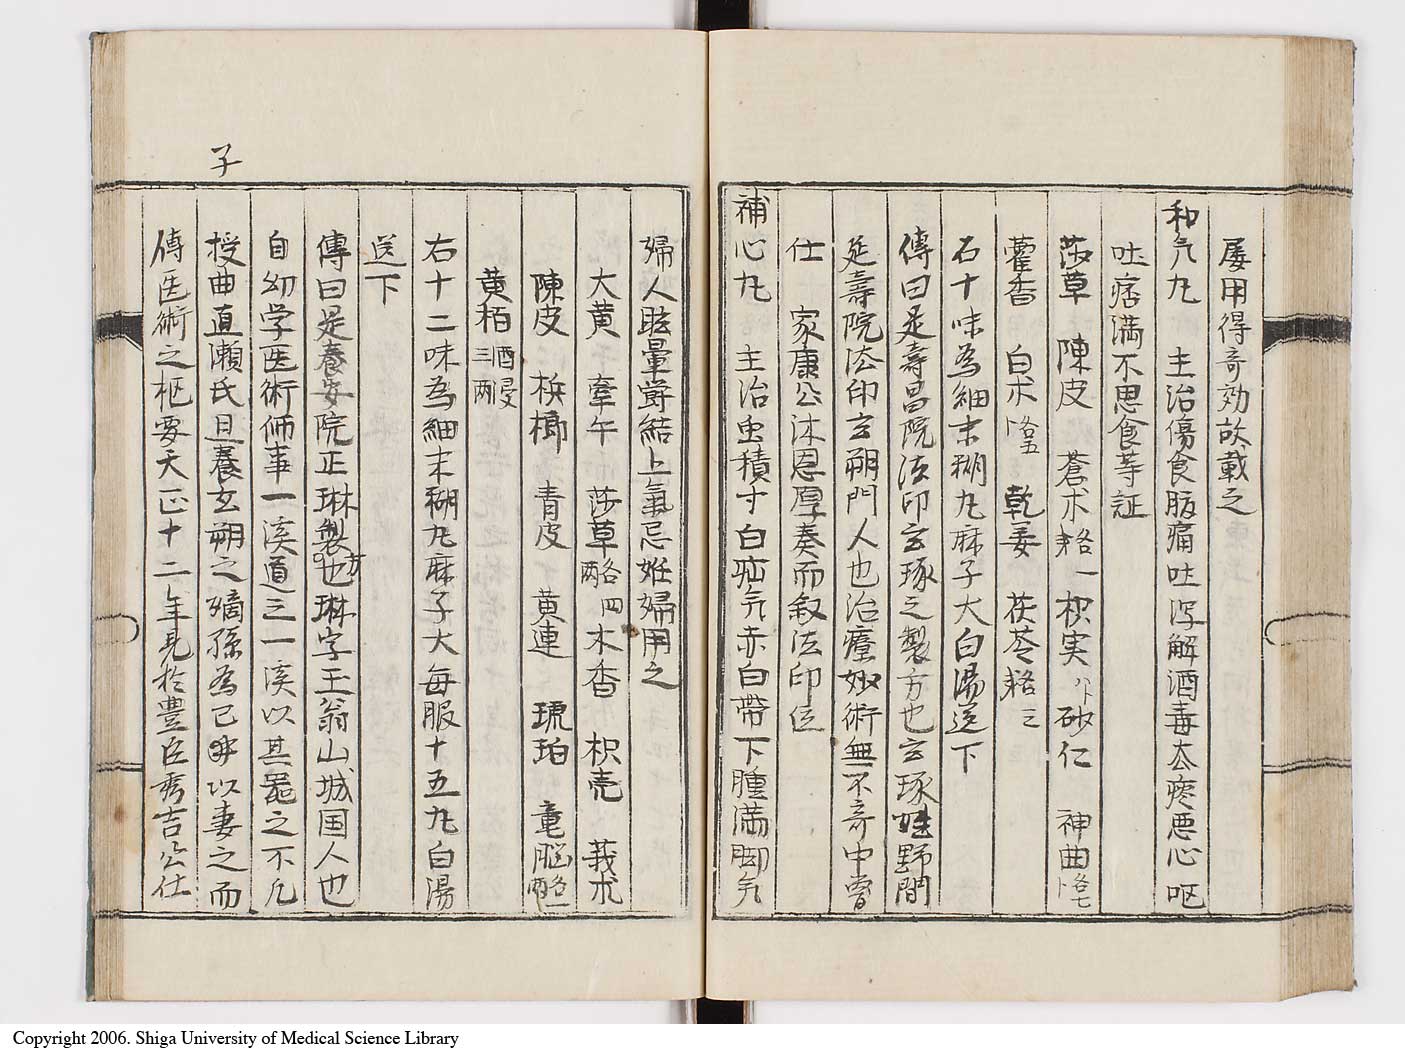 屡用得奇効故載之
和气丸 主治傷食腹痛吐泻解酒毒太疼悪心呕
吐痞満不思食等証
莎草 陳皮 蒼朮 各一 枳実 砂仁 神曲 各七
藿香 白朮 各五 乾姜 茯苓 各三
右十味為細末糊丸麻子大白湯送下
傳曰是壽昌院法印玄琢之製方也玄琢姓野間
延壽院法印玄朔門人也治療妙術無不奇中嘗
仕 家康公沐恩厚奏而叙法印位
補心丸 主治虫積寸白疝气赤白帯下腫満脚气
婦人眩暈欝結上氣忌妊婦用之
大黄 牽午 莎草 各四両 木香 枳壳 莪朮
陳皮 梹榔 青皮 黄連 琥珀 竜脳 各一両
黄栢 酒浸三両
右十二味為細末糊丸麻子大毎服十五丸白湯
送下
傳曰是養安院正琳製方也琳字玉翁山城国人也
自幼学医術師事一溪道三一溪以其噐之不凡
授曲直瀬氏且養玄朔之嫡孫為己子以妻之而
傳医術之枢要天正十二年見於豊臣秀吉公仕
子
Copyright 2006. Shiga University of Medical Science Library